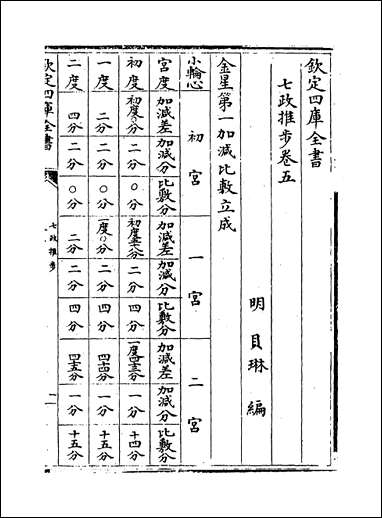 欽定四庫全書
七政推步卷五
明 貝琳 編
金星第一加減比敷立成
小輪心 初宮 一宮 二宮
宮度 加減差 加減分 比敷分 加減差 加減分 比敷分 加減差 加減分 比敷分
初度 初度〇分 二分 〇分 二分 四分 一分 十四分
一度 二分 二分 〇分 一度〇分 二分 四分 一分 十五分
二度 四分 二分 〇分 二分 二分 四分 一分 十五分
欽定四庫全書
七政推步